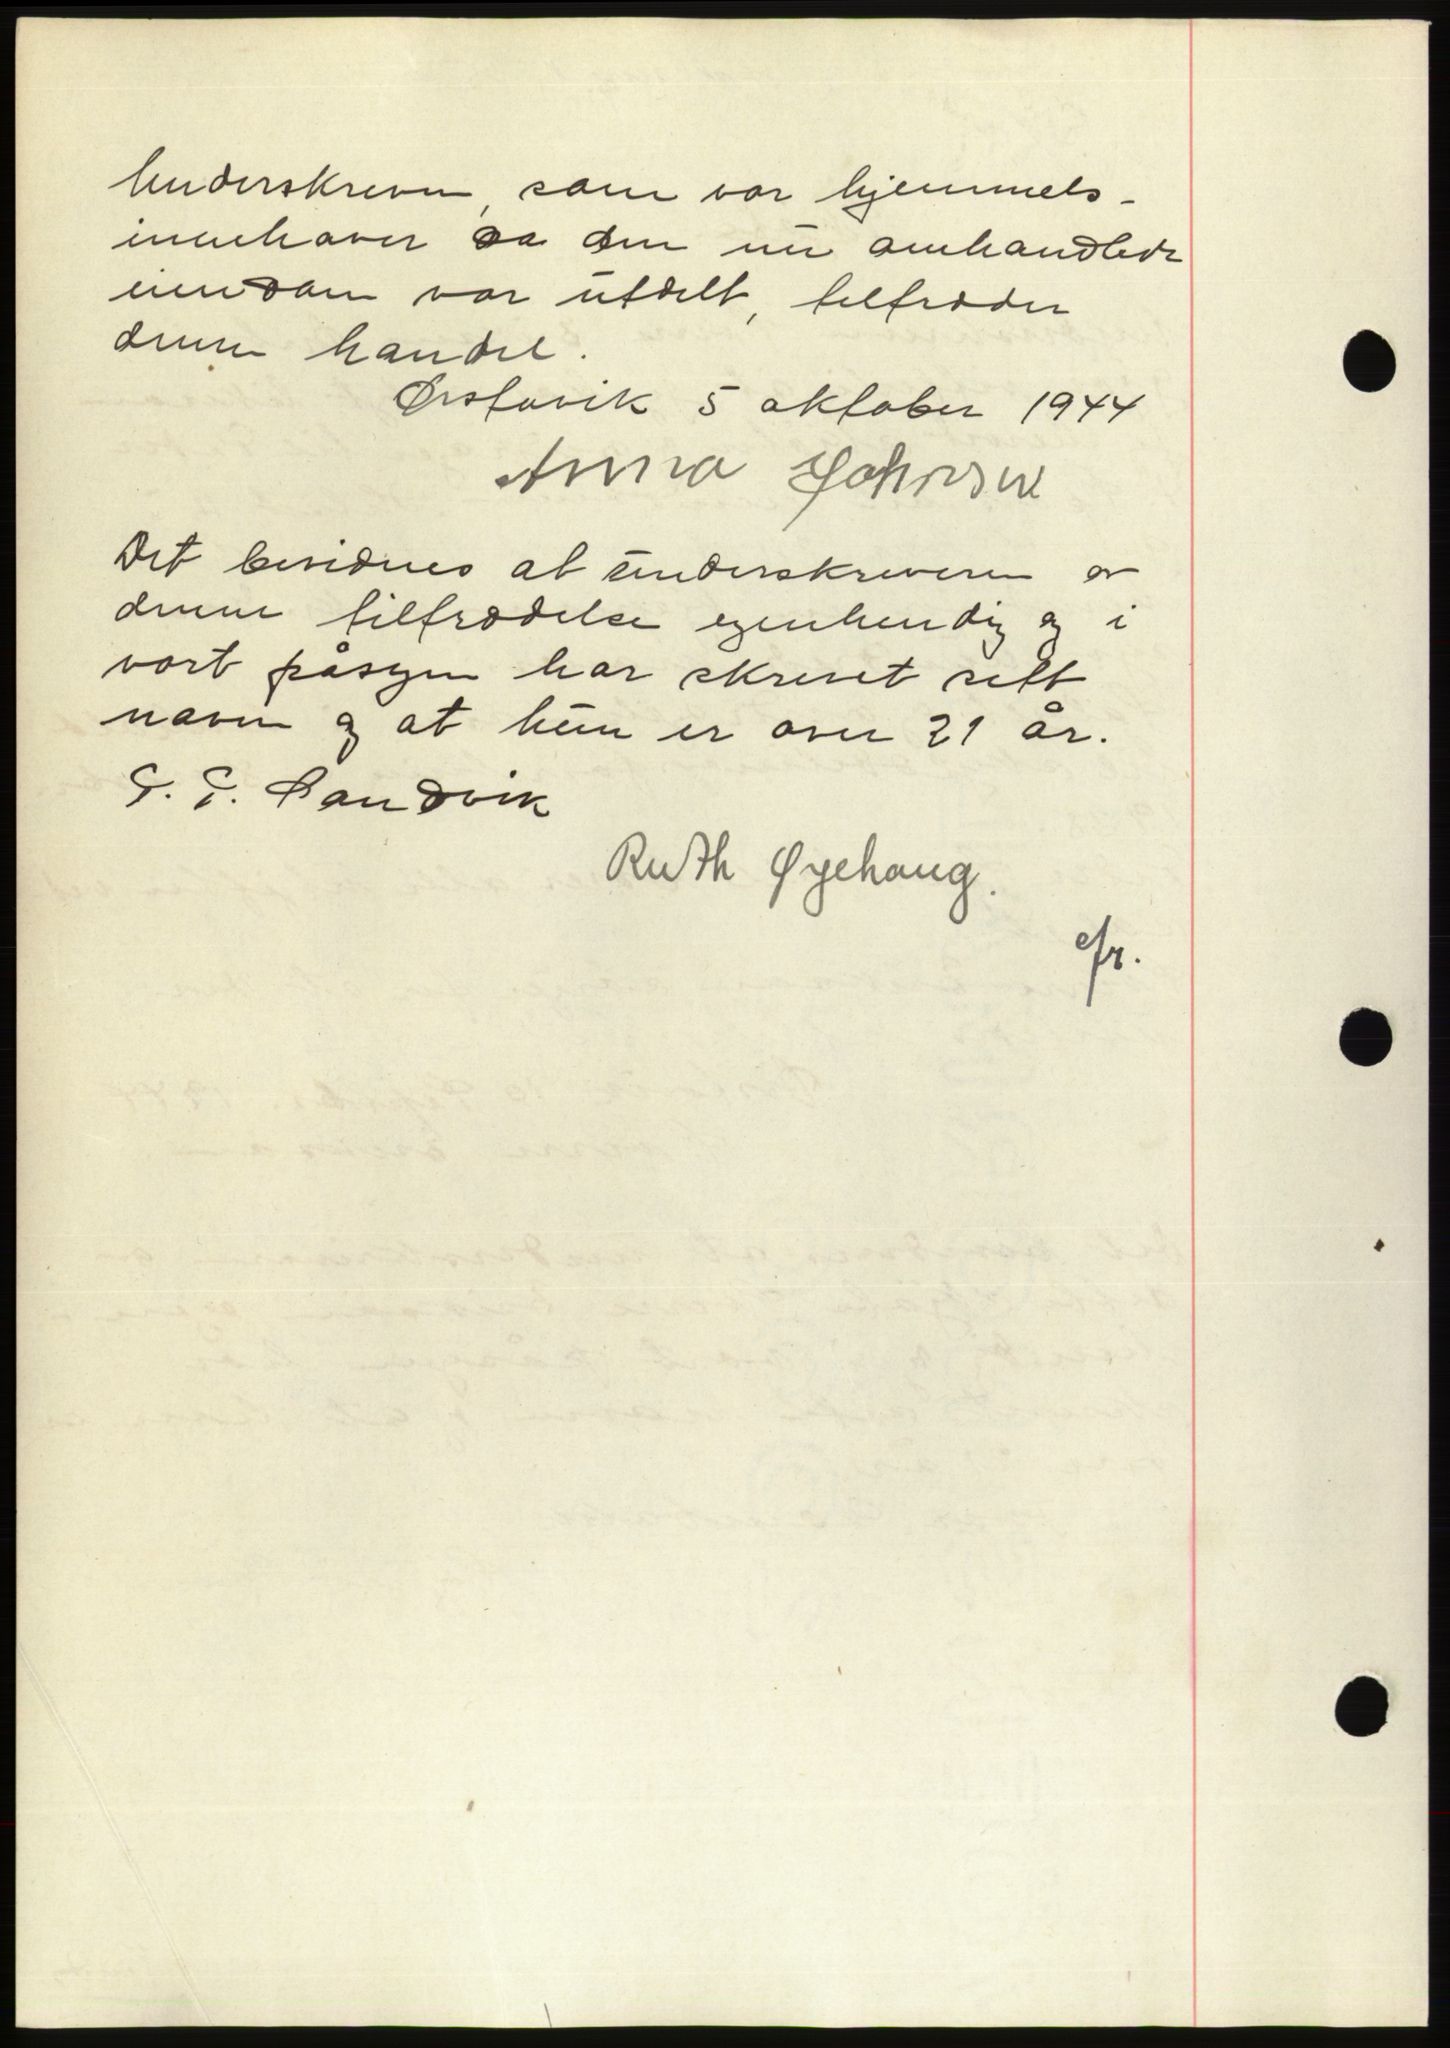 Underskreven, som var hjemmels-
innehaver da den nu omhandlede
eiendom var utdelt, tiltreder
denne handel.
Ørstavik 5 oktober 1944
Anna Johnsen
Det bevidnes at underskriveren av
denne tiltredelse egenhendig og i
vort påsyn har skrevet sitt
navn og at hun er over 21 år.
Sandvik
Ruth Øyehaug.